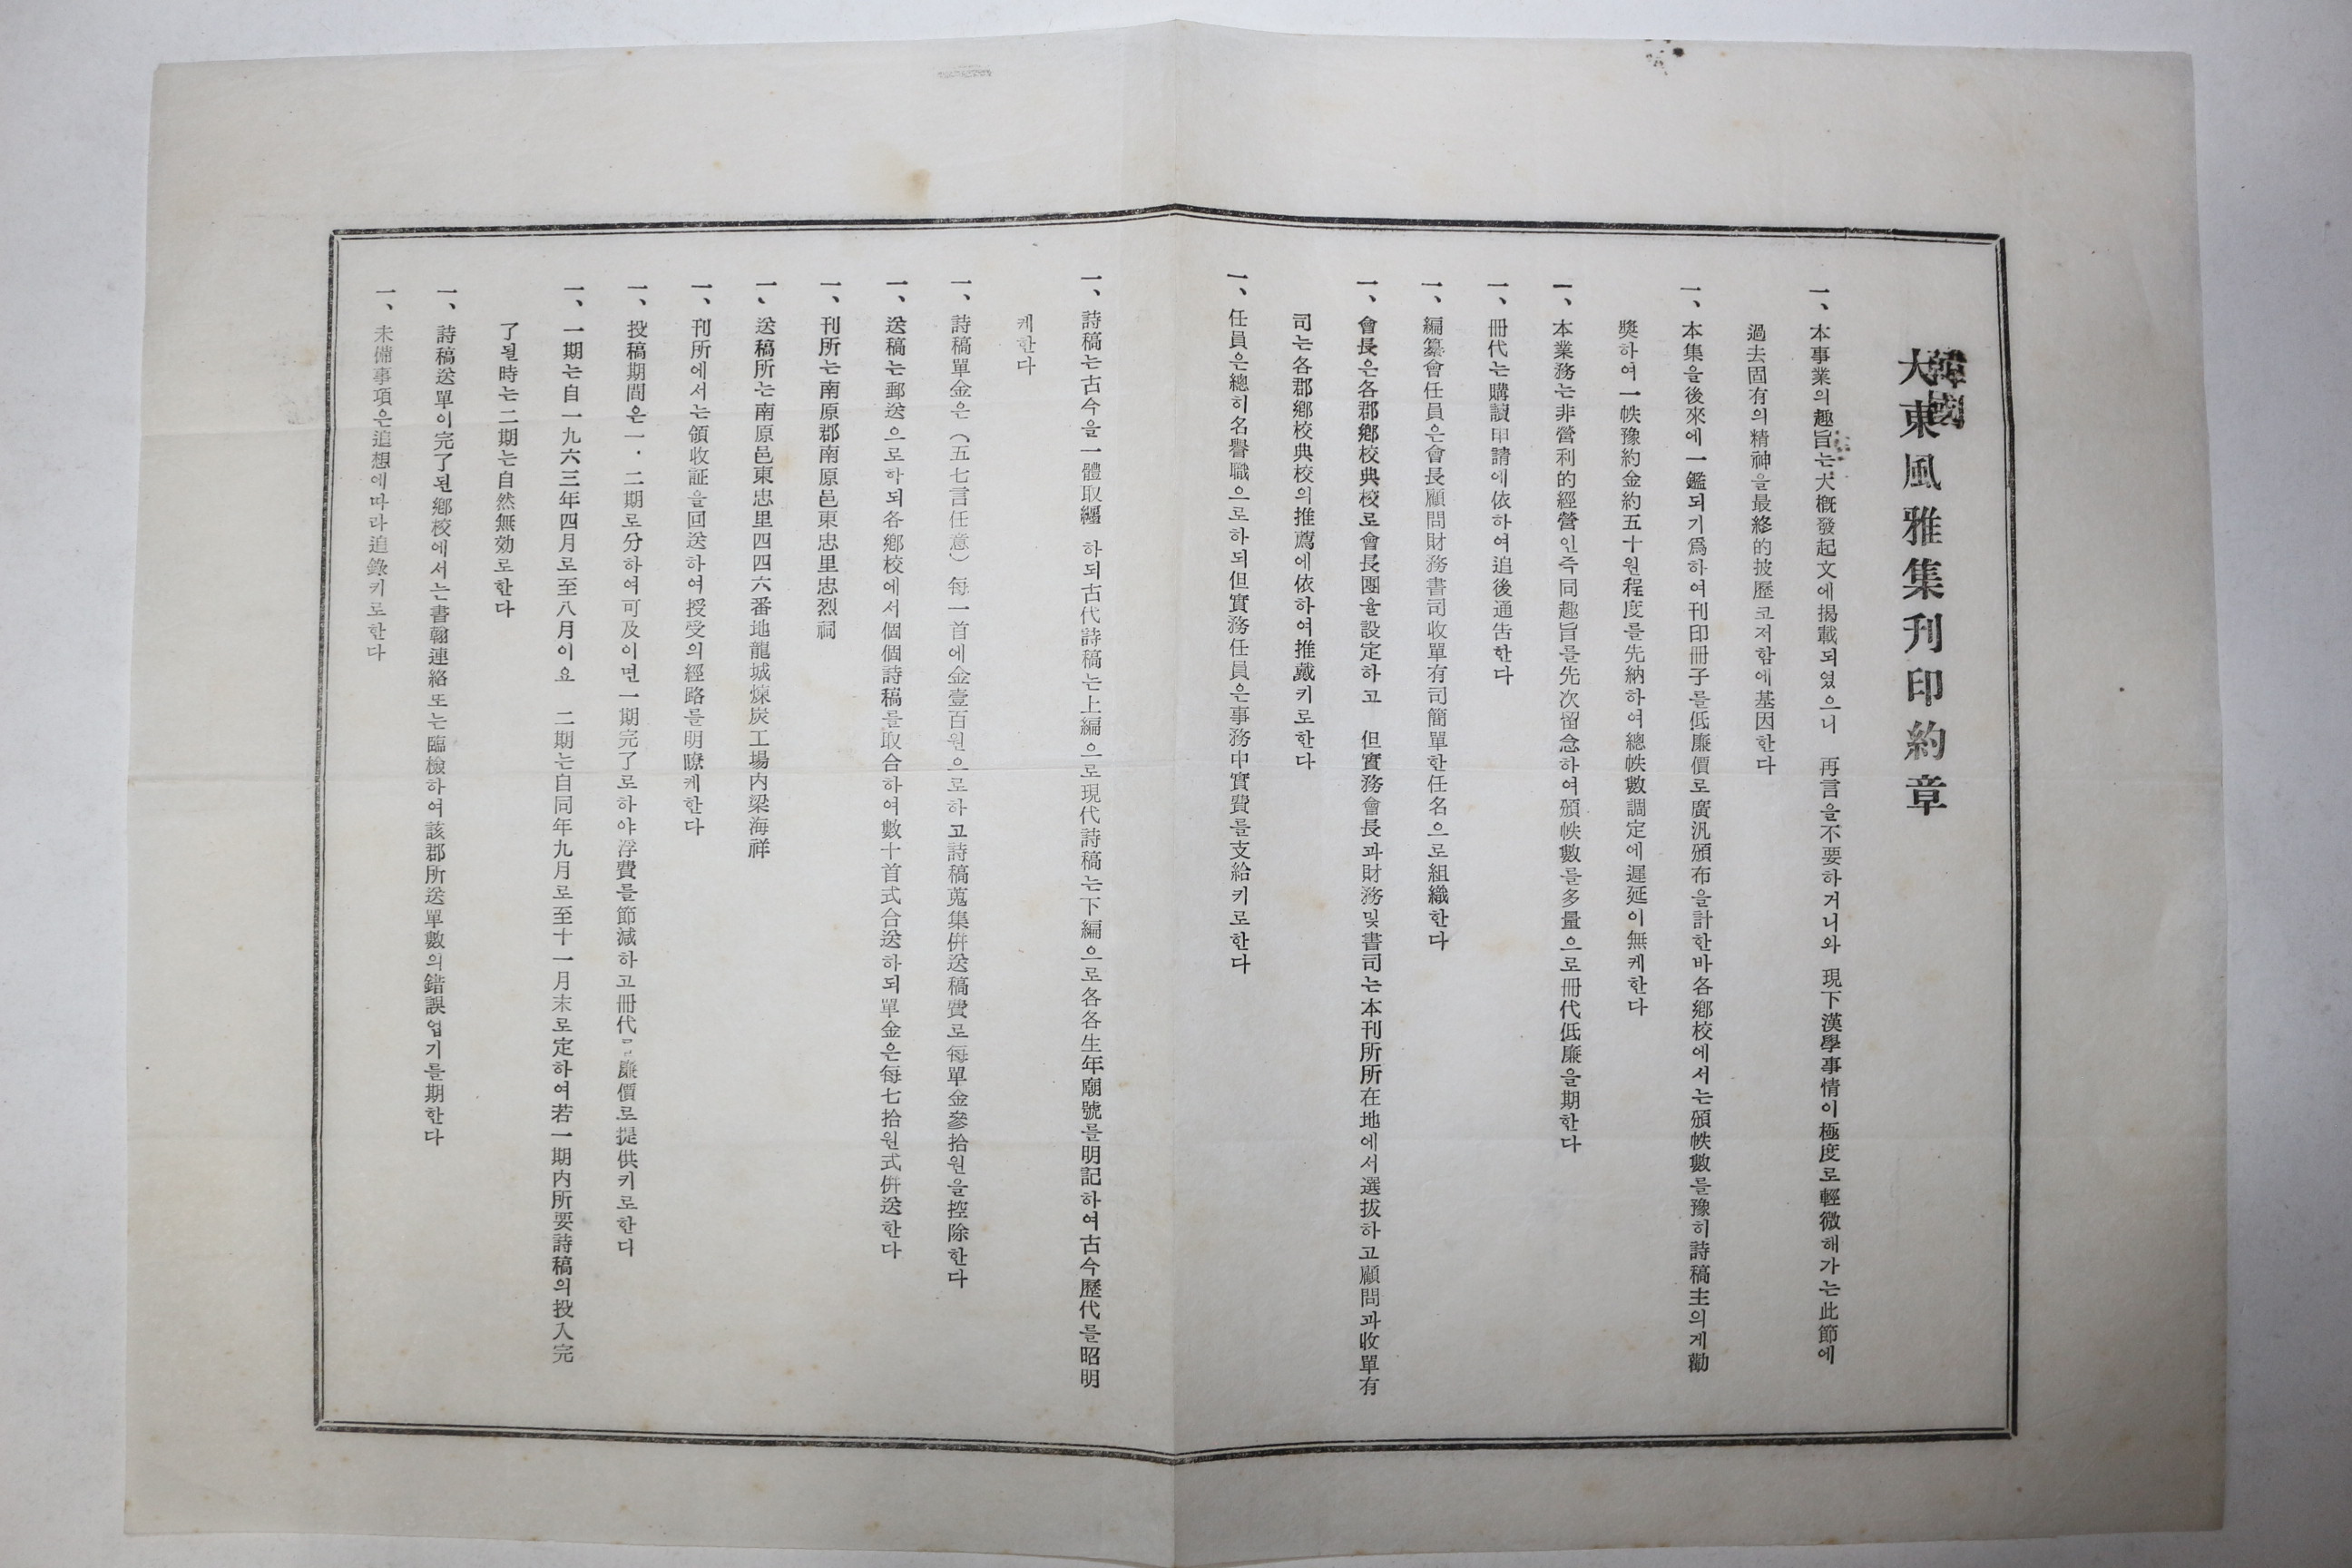 韓國
大東風雅集刊印約章
一、本事業의趣旨는大槪發起文에揭載되였으니 再言을不要하거니와 現下漢學事情이極度로輕微해가는此節에
過去固有의精神을最終的披歷코저함에基因한다
一、本集을後來에一鑑되기爲하여刊印冊子를低廉價로廣汎頒布을計한바各鄕校에서는頒帙數를豫히詩稿主의게勸
獎하여一帙豫約金約五十원程度를先納하여總帙數調定에遲延이無케한다
一、本業務는非營利的經營인즉同趣旨를先次留念하여頒帙數를多量으로冊代低廉을期한다
一、冊代는購讀申請에依하여追後通告한다
一、編纂會任員은會長顧問財務書司收單有司簡單한任名으로組織한다
一、會長은各郡鄕校典校로會長團을設定하고 但實務會長과財務및書司는本刊所所在地에서選拔하고顧問과收單有
司는各郡鄕校典校의推薦에依하여推戴키로한다
一、任員은總히名譽職으로하되但實務任員은事務中實費를支給키로한다
一、詩稿는古今을一體取纒 하되古代詩稿는上編으로現代詩稿는下編으로各各生年廟號를明記하여古今歷代를昭明
케한다
一、詩稿單金은（五七言任意）每一首에金壹百원으로하고詩稿蒐集併送稿費로每單金參拾원을控除한다
一、送稿는郵送으로하되各鄕校에서個個詩稿를取合하여數十首式合送하되單金은每七拾원式併送한다
一、刊所는南原郡南原邑東忠里忠烈祠
一、送稿所는南原邑東忠里四四六番地龍城煉炭工場内梁海祥
一、刊所에서는領收証을回送하여授受의經路를明瞭케한다
一、投稿期間은一．二期로分하여可及이면一期完了로하야浮費를節減하고冊代를廉價로提供키로한다
一、一期는自一九六三年四月로至八月이요 二期는自同年九月로至十一月末로定하여若一期内所要詩稿의投入完
了될時는二期는自然無効로한다
一、詩稿送單이完了된鄕校에서는書翰連絡또는臨檢하여該郡所送單數의錯誤업기를期한다
一、未備事項은追想에따라追錄키로한다